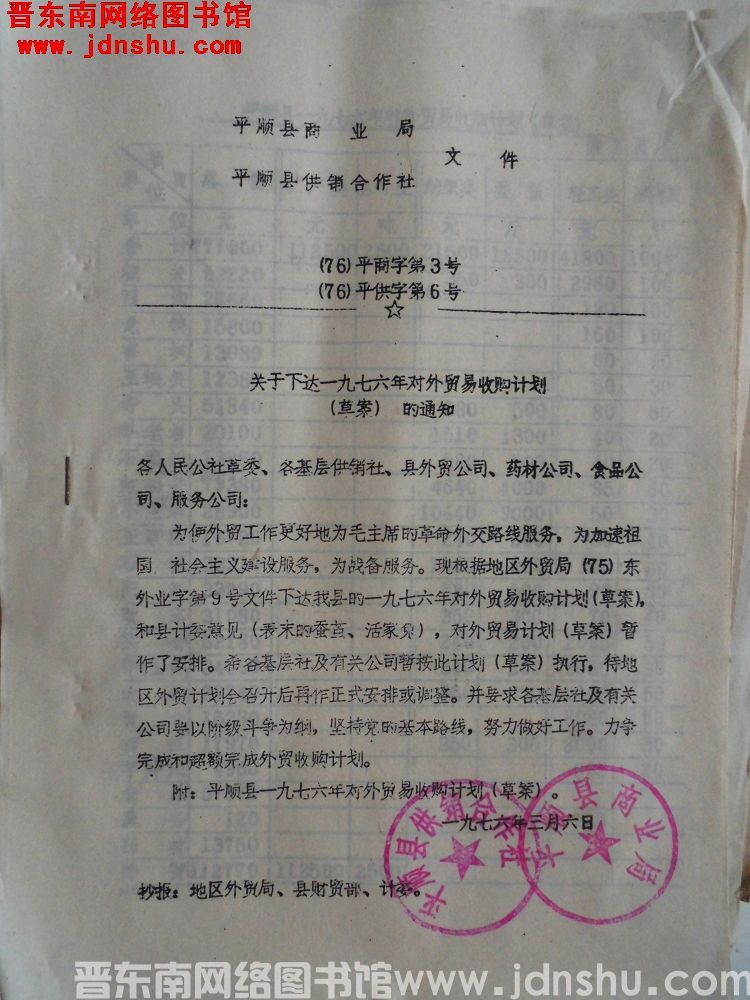 晋东南网络图书馆
www.jdnshu.com
平顺县商业局
文件
平顺县供销合作社
(76)平商字第3号
(76)平供字第6号
关于下达一九七六年对外贸易收购计划
(草案) 的通知
各人民公社革委、各基层供销社、县外贸公司、药材公司、食品公
司、服务公司:
为使外贸工作更好地为毛主席的革命外交路线服务,为加速祖
国 社会主义建设服务,为战备服务。现根据地区外贸局(75)东
外业字第9号文件下达我县的一九七六年对外贸易收购计划(草案),
和县计委意见(表末的蚕茧、活家兔),对外贸易计划(草案)暂
作了安排。希各基层社及有关公司暂按此计划(草案)执行,待地
区外贸计划会召开后再作正式安排或调整。并要求各基层社及有关
公司要以阶级斗争为纲,坚持党的基本路线,努力做好工作。力争
完成和超额完成外贸收购计划。
附:平顺县一九七六年对外贸易收购计划(草案)。
一九七六年三月六日
平顺县供销合作社
平顺县商业局
抄报:地区外贸局、县财贸部、计委。
晋东南网络图书馆www.jdnshu.com